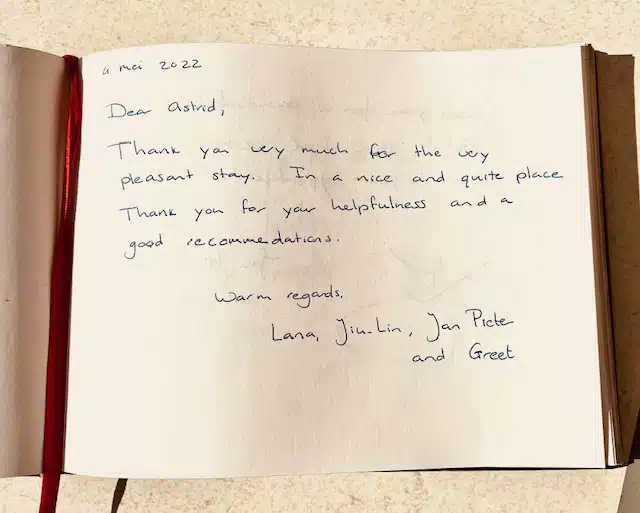 4 mei 2022
Dear Astrid,
Thank you very much for the very
pleasant stay. In a nice and quite place
Thank you for your helpfulness and a
good recommendations.
Warm regards,
Lana, Jiu-Lin, Jan Pieter
and Greet